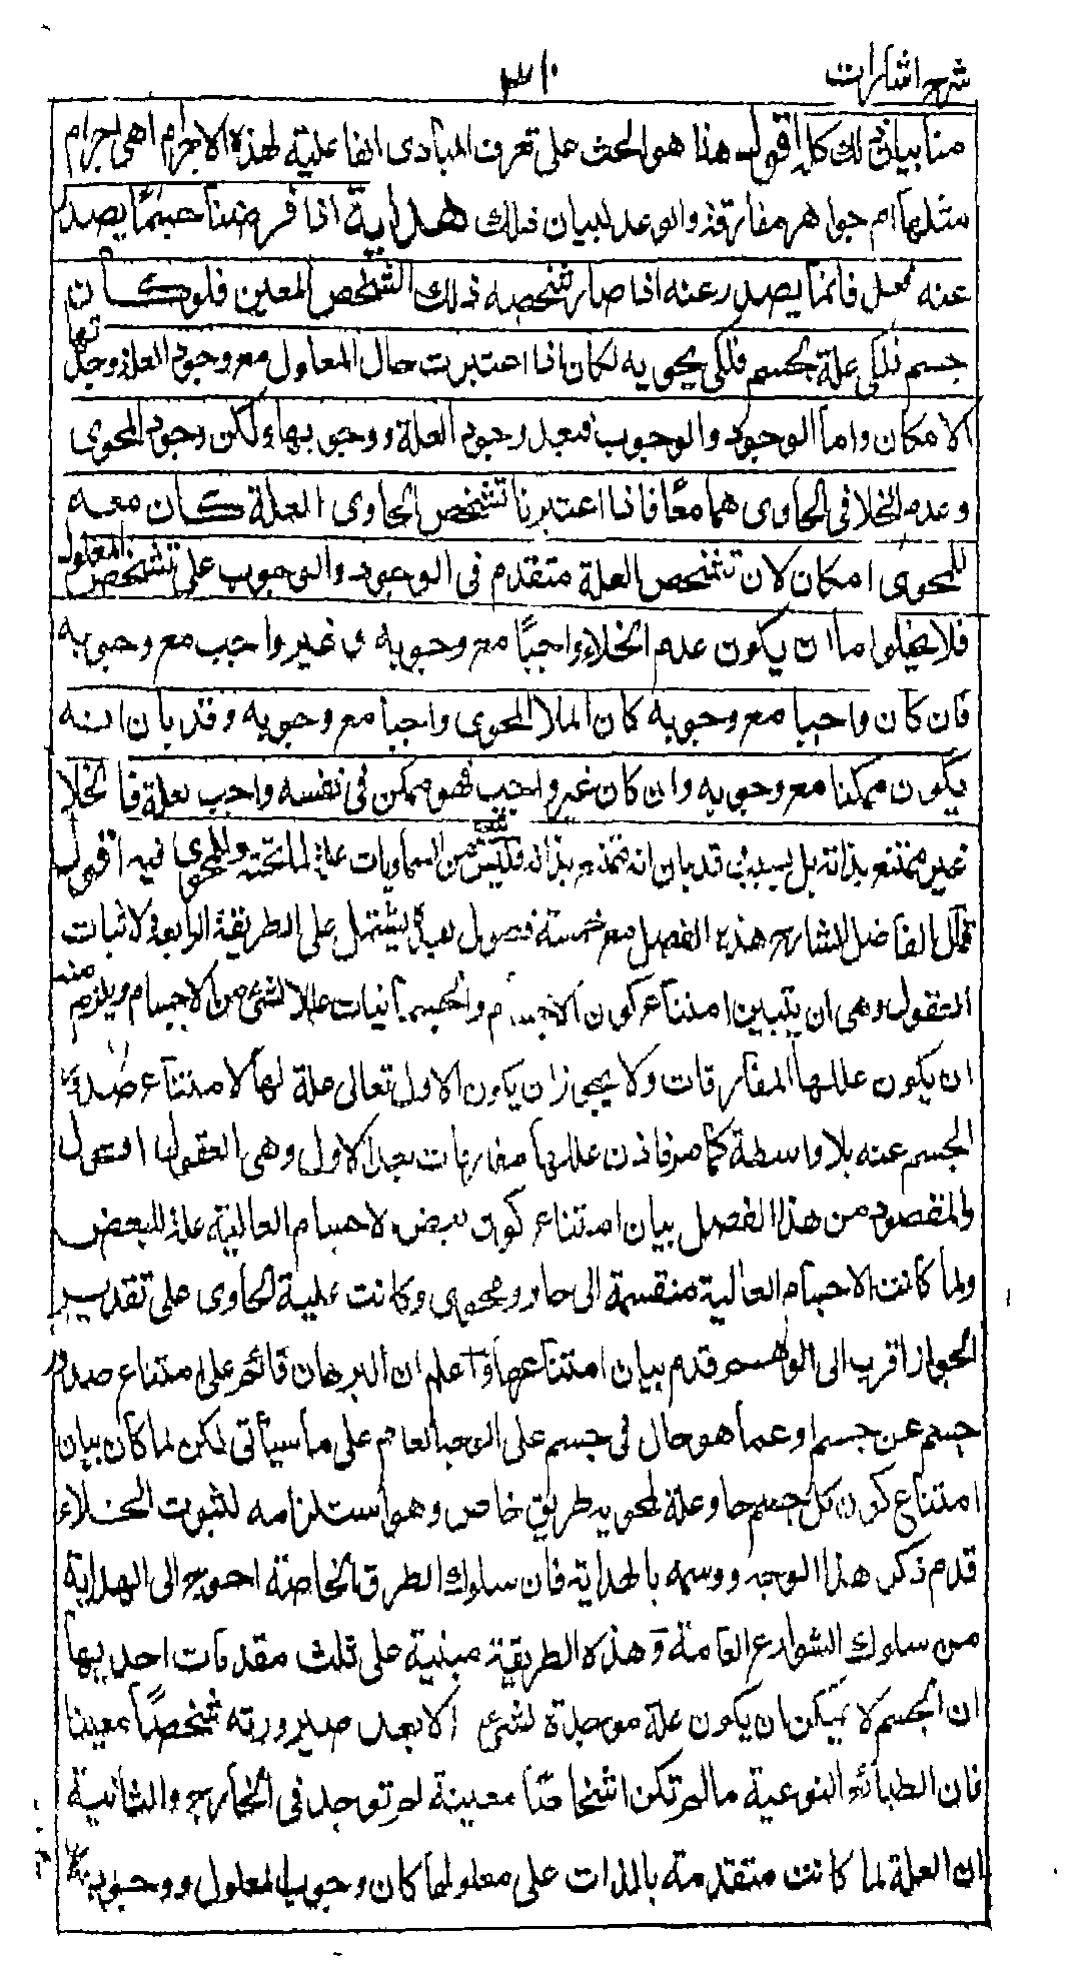 شرح اشارات
٣١٠
منا بيان ذلك كله اقول هذا هو الحث على تعرف المبادى الفاعلية لهذه الاجرام اهى اجرام
مثلها ام جواهر مفارقة والوعد لبيان ذلك هداية اذا فرضنا جسما يصدر
عنه فعل فانما يصدر عنه اذا صار شخصه ذلك الشخص المعين فلو كان
جسم فلكى علة لجسم فلكى يحويه لكان اذا اعتبرت حال المعلول مع وجود العلة وجدتها
الامكان واما الوجود والوجوب فبعد وجود العلة ووجوبها ولكن وجود المحوى
وعدم الخلا فى الحاوى هما معًا فاذا اعتبرنا تشخص الحاوى العلة كان معه
للمحوى امكان لان تشخص العلة متقدم فى الوجود والوجوب على تشخص المعلول
فلا يخلو اما ان يكون عدم الخلاء واجبًا مع وجوبه او غير واجب مع وجوبه
فان كان واجبا مع وجوبه كان الملا المحوى واجبا مع وجوبه وقد بان انه
يكون ممكنا مع وجوبه وان كان غير واجب فهو ممكن فى نفسه واجب بعلة فالخلا
غير ممتنع بذاته بل بسبب وقد بان انه ممتنع بذاته فليس شئ من السماويات علة لما تحته وللمحوى فيه اقول
قال الفاضل الشارح هذه الفصل مع خمسة فصول بعده يشتمل على الطريقة الرابعة لاثبات
العقول وهى ان يتبين امتناع كون الاجسام والجسمانيات عللا لشئ من الاجسام ويلزم منه
ان يكون عللها المفارقات ولا يجوز ان يكون الاول تعالى علة لها لامتناع صدور
الجسم عنه بلا واسطة كما مر فاذن عللها مفارقات بعد الاول وهى العقول اقول
والمقصود من هذا الفصل بيان امتناع كون بعض الاجسام العالية علة للبعض
ولما كانت الاجسام العالية منقسمة الى حاو ومحوى وكانت علية الحاوى على تقدير
الجواز اقرب الى الوهم قدم بيان امتناعها واعلم ان البرهان قائم على امتناع صدور
جسم عن جسم او عما هو حال فى جسم على الوجه العام على ما سيأتى لكن لما كان بيان
امتناع كون كل جسم حاو علة لمحويه طريق خاص وهو استلزامه لثبوت الخلاء
قدم ذكر هذا الوجه ووسمه بالهداية فان سلوك الطرق الخاصة احوج الى الهداية
من سلوك الشوارع العامة وهذه الطريقة مبنية على ثلث مقدمات احديها
ان الجسم لا يمكن ان يكون علة موجدة لشئ الا بعد صيرورته شخصًا معينا
فان الطبائع النوعية مالم تكن اشخاصًا معينة لم توجد فى الخارج والثانية
ان العلة لما كانت متقدمة بالذات على معلولها كان وجوب المعلول ووجوده